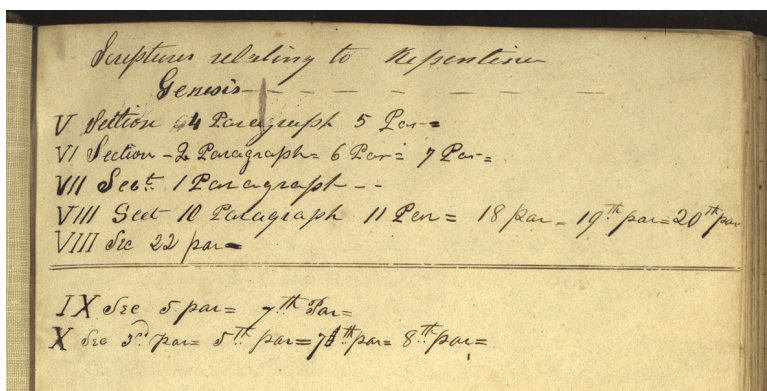 Scriptures relating to Repentince
Genesis - - - - - - -
V Section 4 Paragraph 5 Par=
VI Section - 2 Paragraph= 6 Par= 7 Par=
VII Sect. 1 Paragraph - -
VIII Sect 10 Paragraph 11 Par = 18 par - 19th par= 20th par
VIII Sec 22 par=
IX Sec 5 par= 7th Par=
X Sec 3rd par= 5th par= 7th par= 8th par=